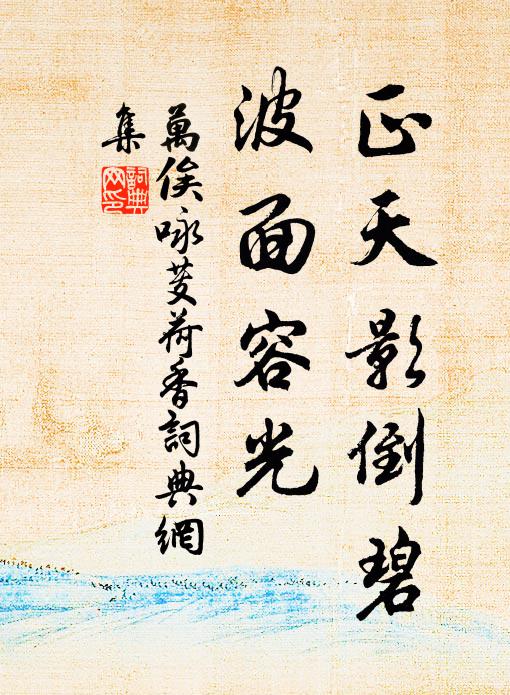 正天影倒碧
波面容光
萬俟咏芰荷香詞典網
集
詞典網印